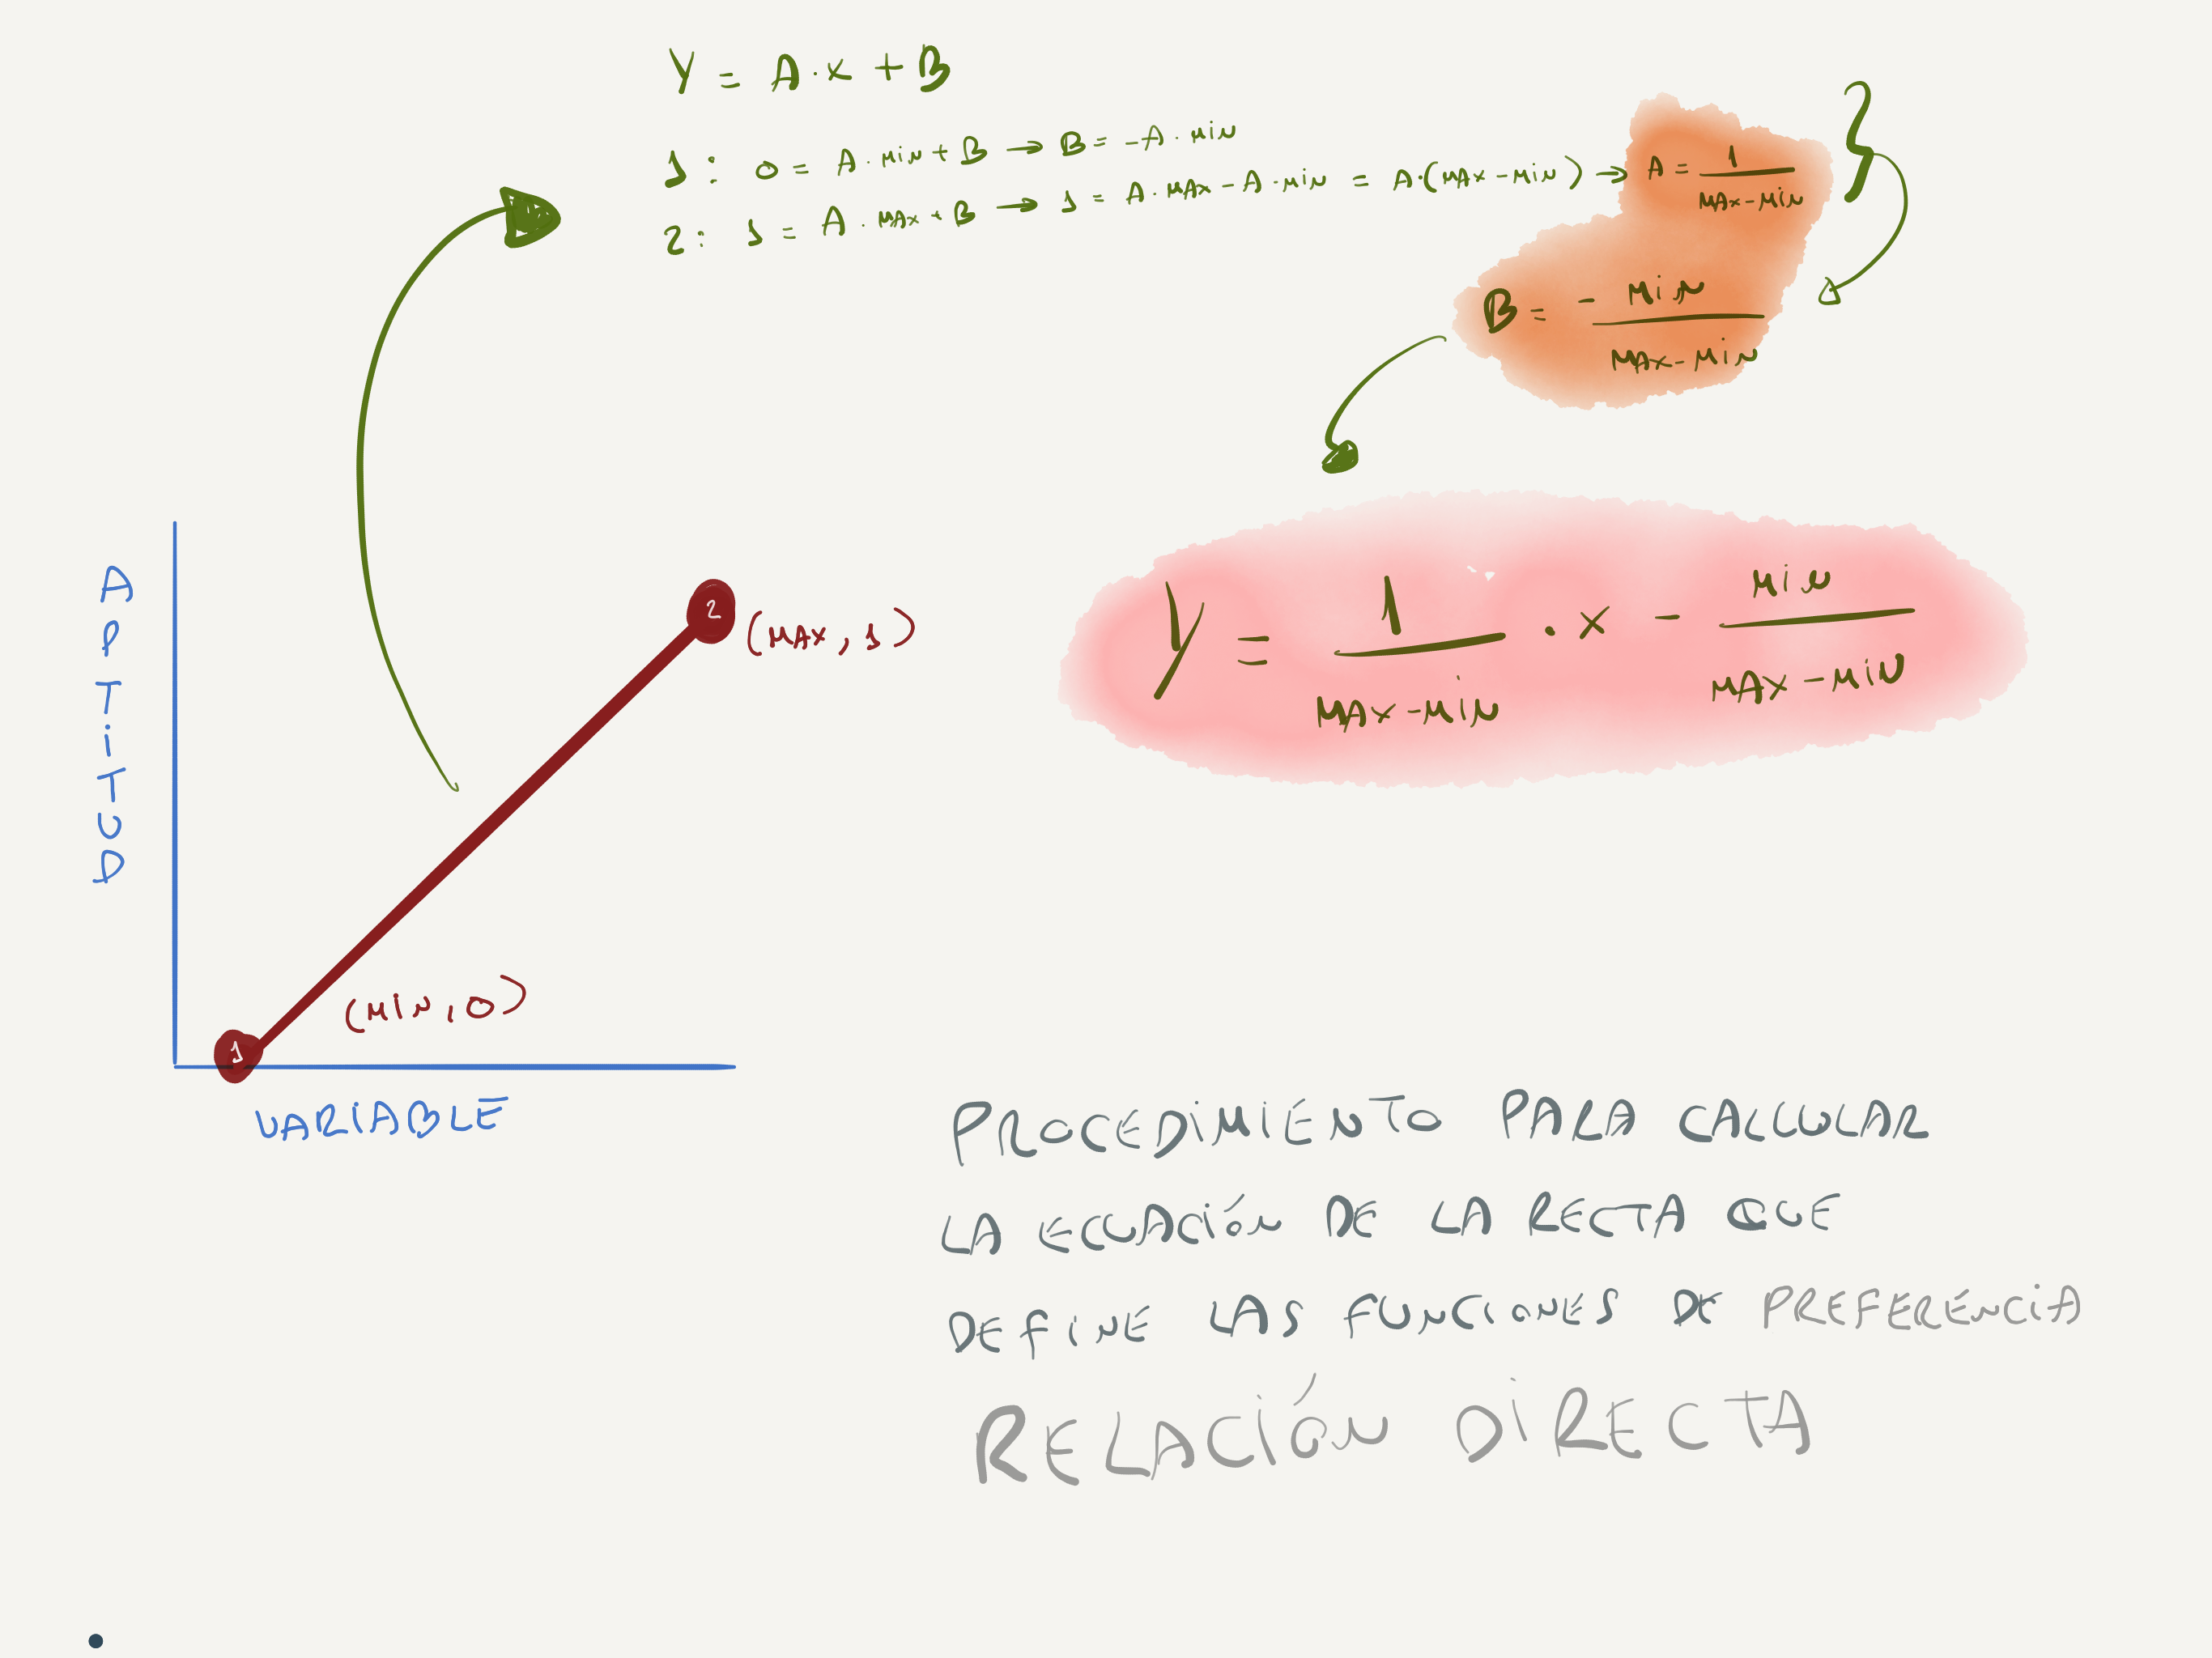 Y = A·x + B
1: 0 = A·MIN + B → B = -A·MIN
2: 1 = A·MAX + B → 1 = A·MAX - A·MIN = A·(MAX-MIN) → A = 1/(MAX-MIN)
B = - MIN/(MAX-MIN)
Y = 1/(MAX-MIN) · x - MIN/(MAX-MIN)
APTITUD
2
(MAX, 1)
(MIN, 0)
1
VARIABLE
PROCEDIMIENTO PARA CALCULAR
LA ECUACIÓN DE LA RECTA QUE
DEFINE LAS FUNCIONES DE PREFERENCIA
RELACIÓN DIRECTA